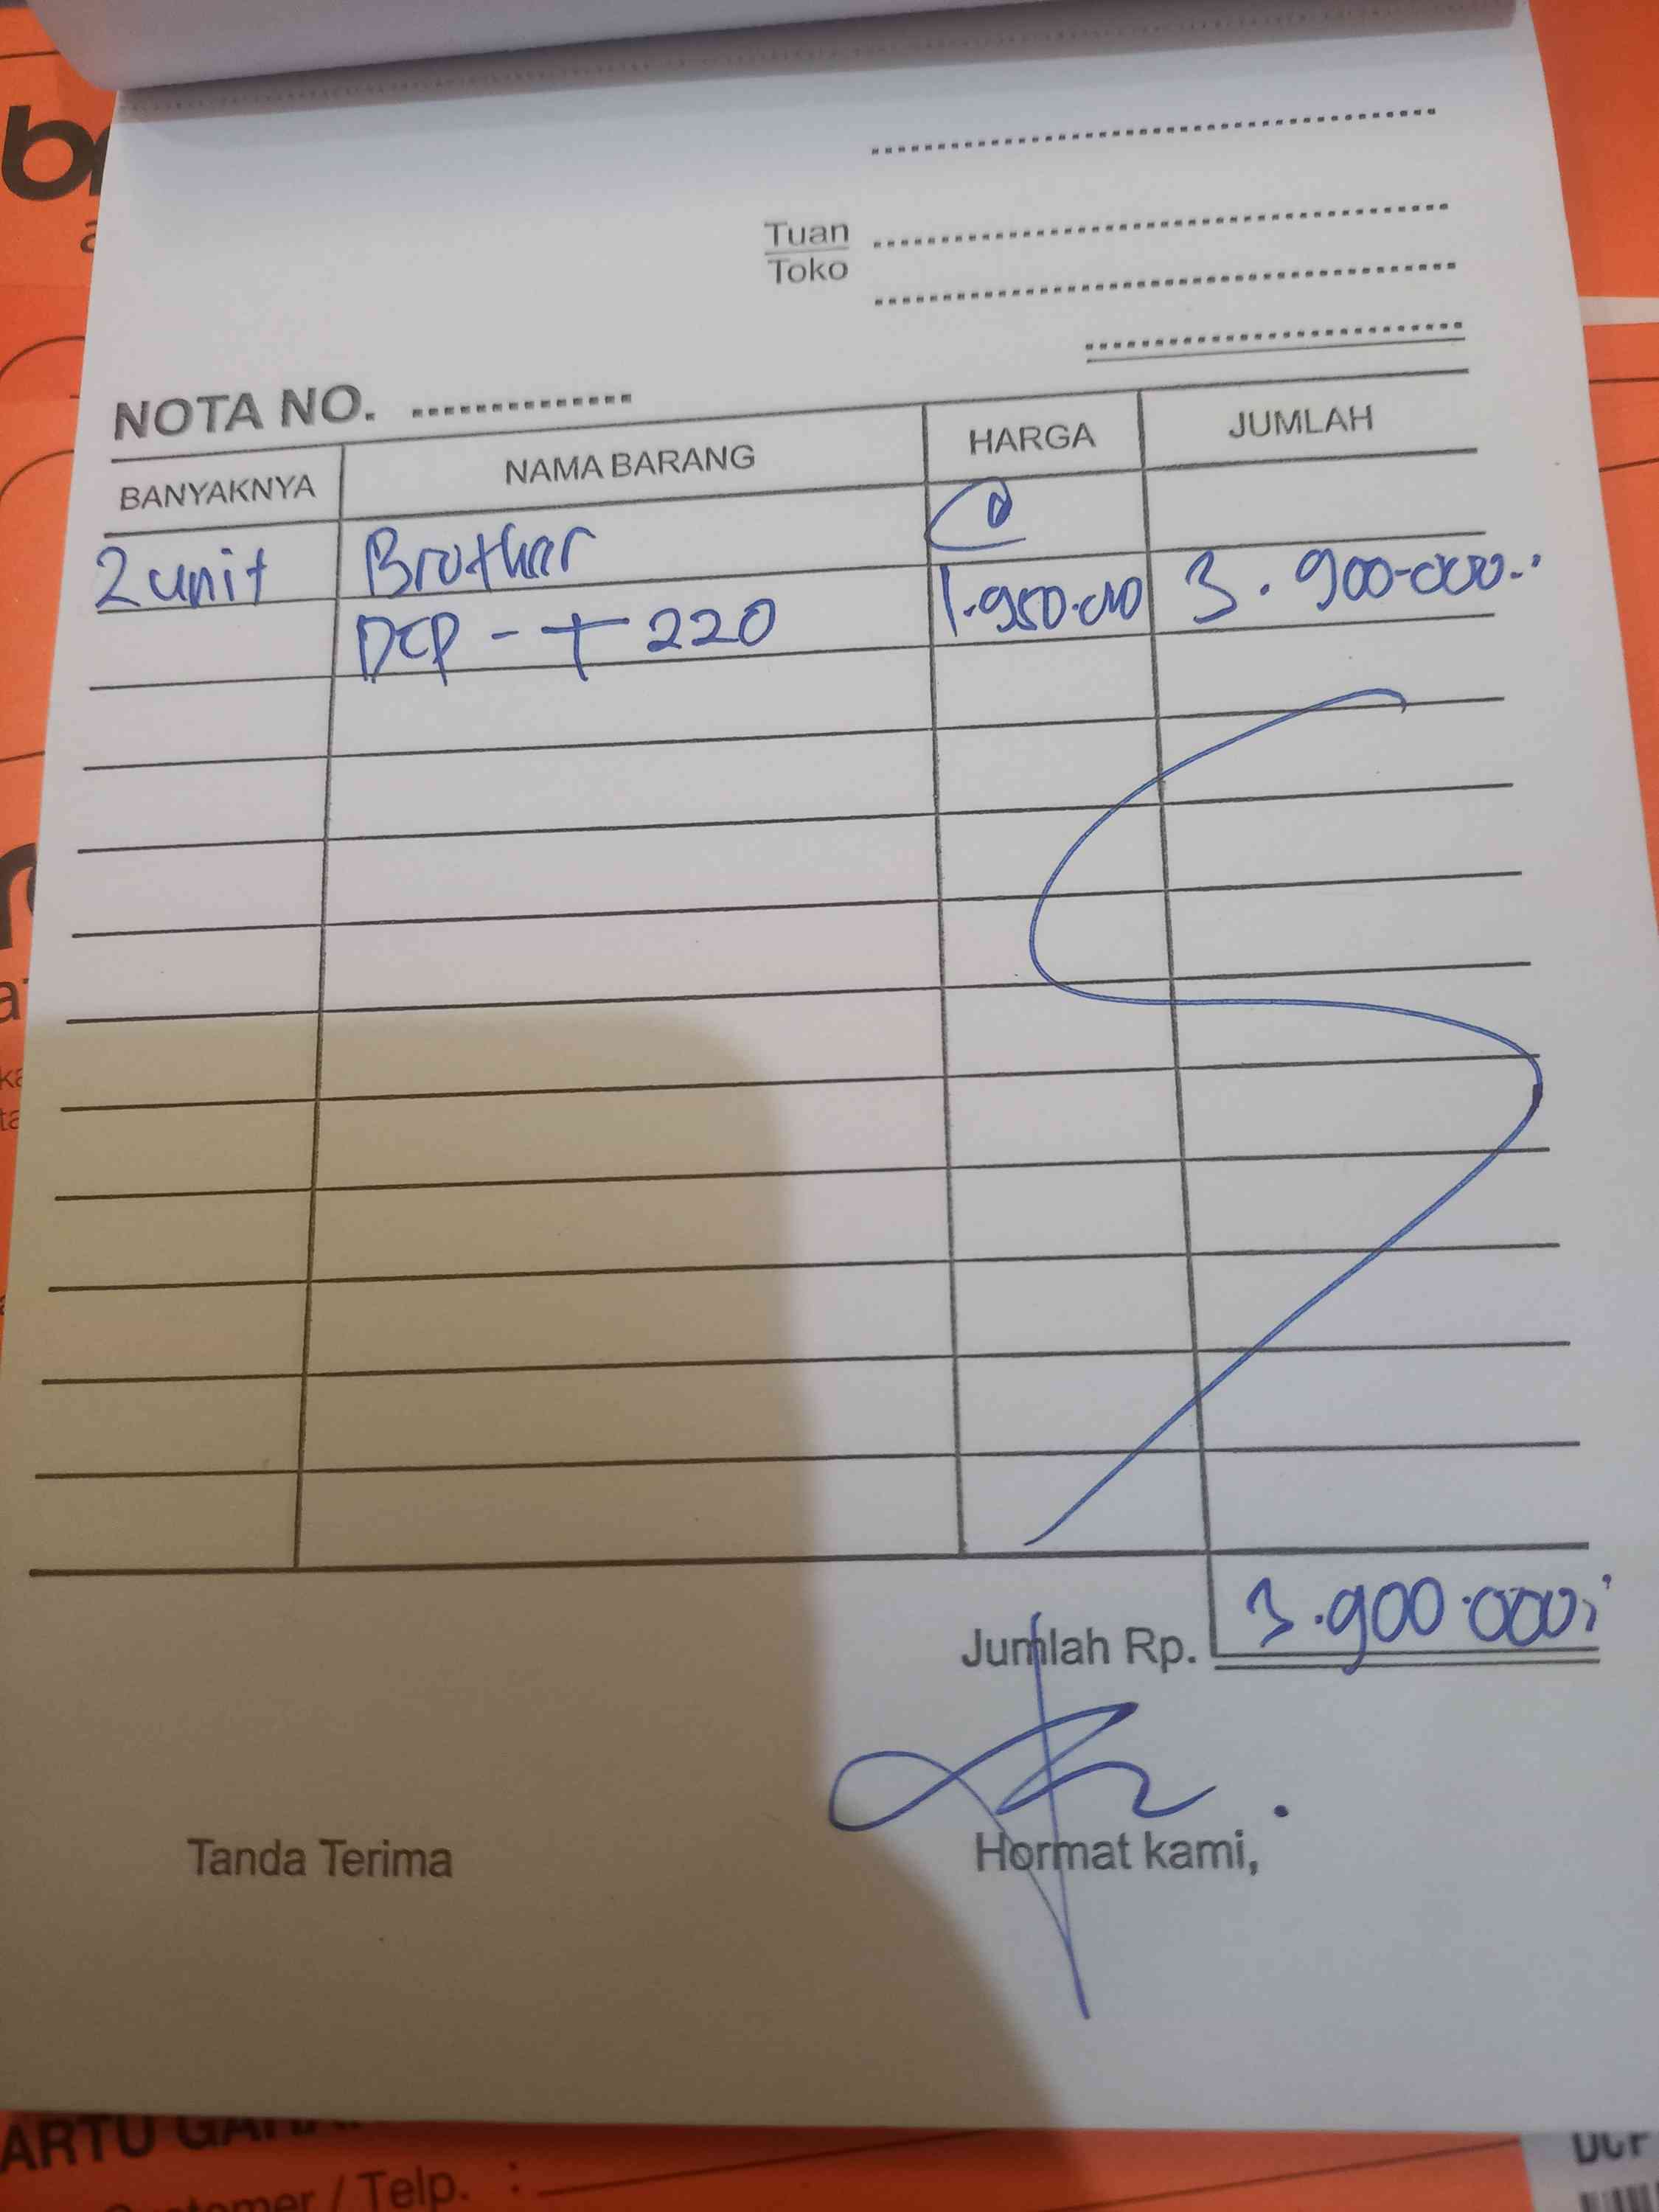 Tuan
Toko
NOTA NO.
BANYAKNYA NAMA BARANG HARGA JUMLAH
@
2 unit Brother 1.950.000 3.900.000
DCP - T 220
Jumlah Rp. 3.900.000
Tanda Terima Hormat kami,
ARTU GARAN
Customer / Telp. :
DCP